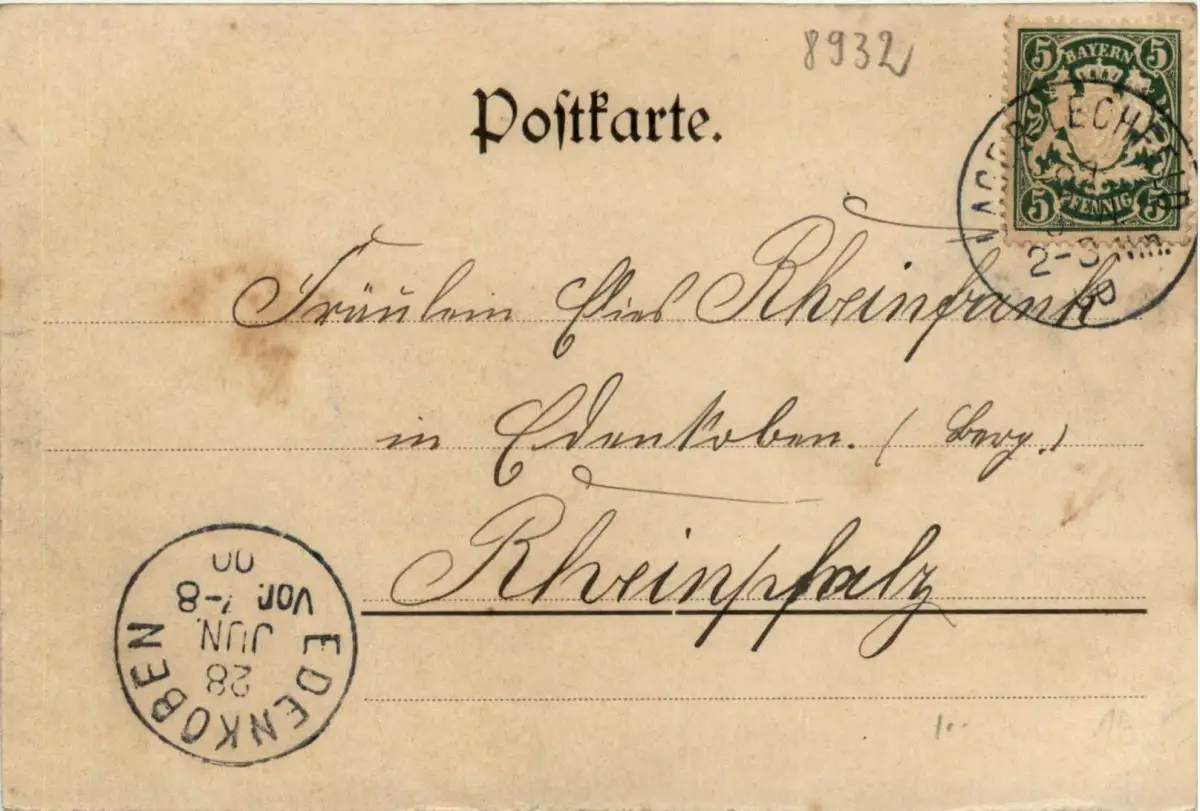 8932
Postkarte.
5 BAYERN 5
5 PFENNIG 5
LAGER LECHFELD
2-3 Nm.
00
Fräulein Elis Rheinfrank
in Edenkoben. (Berg.)
Rheinpfalz
EDENKOBEN
28
JUN.
Vor. 7-8
00